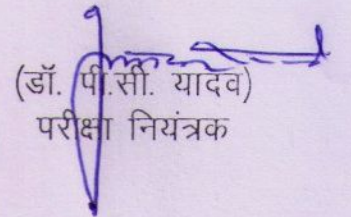 (डॉ. पी.सी. यादव)
परीक्षा नियंत्रक